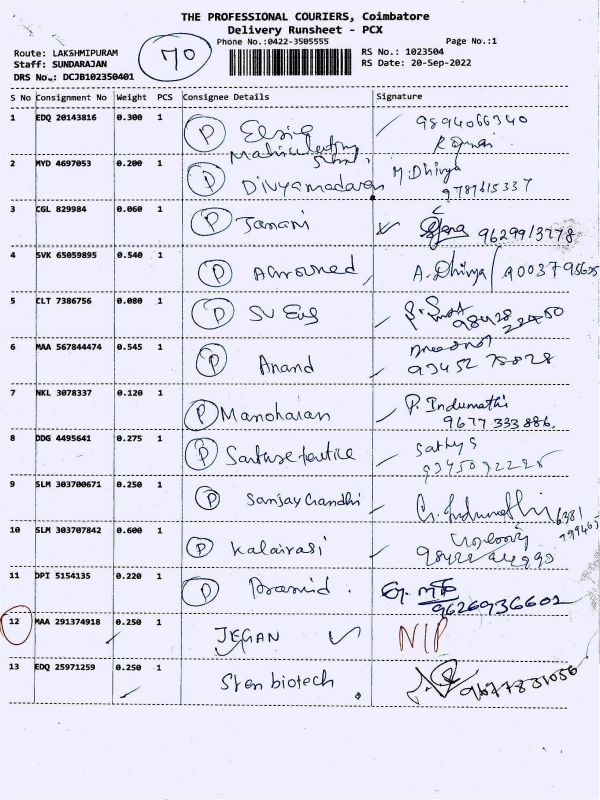 THE PROFESSIONAL COURIERS, Coimbatore
Delivery Runsheet - PCX
Phone No.:0422-3505555 Page No.:1
Route: LAKSHMIPURAM 70 RS No.: 1023504
Staff: SUNDARAJAN RS Date: 20-Sep-2022
DRS No.: DCJB102350401
S No Consignment No Weight PCS Consignee Details Signature
1 EDQ 20143816 0.300 1 P 9894066340
2 MYD 4697053 0.200 1 P Divyamadaran M. Dhivya
9787615337
3 CGL 829984 0.060 1 P Janani 9629913778
4 SVK 65059895 0.540 1 P A. Dhivya / 9003795625
5 CLT 7386756 0.080 1 P SV Eng
6 MAA 567844474 0.545 1 P Anand
93452 78828
7 NKL 3078337 0.120 1 P Manoharan P. Indumathi
9677 333 886.
8 DDG 4495641 0.275 1 P Sathya
9 SLM 303700671 0.250 1 P Sanjay Gandhi G. Indumathi
10 SLM 303707842 0.600 1 P Kalairasi
11 DPI 5154135 0.220 1 P Pramid.
9626936602
12 MAA 291374918 0.250 1 JEGAN NIP
13 EDQ 25971259 0.250 1 Sten biotech 9677831056